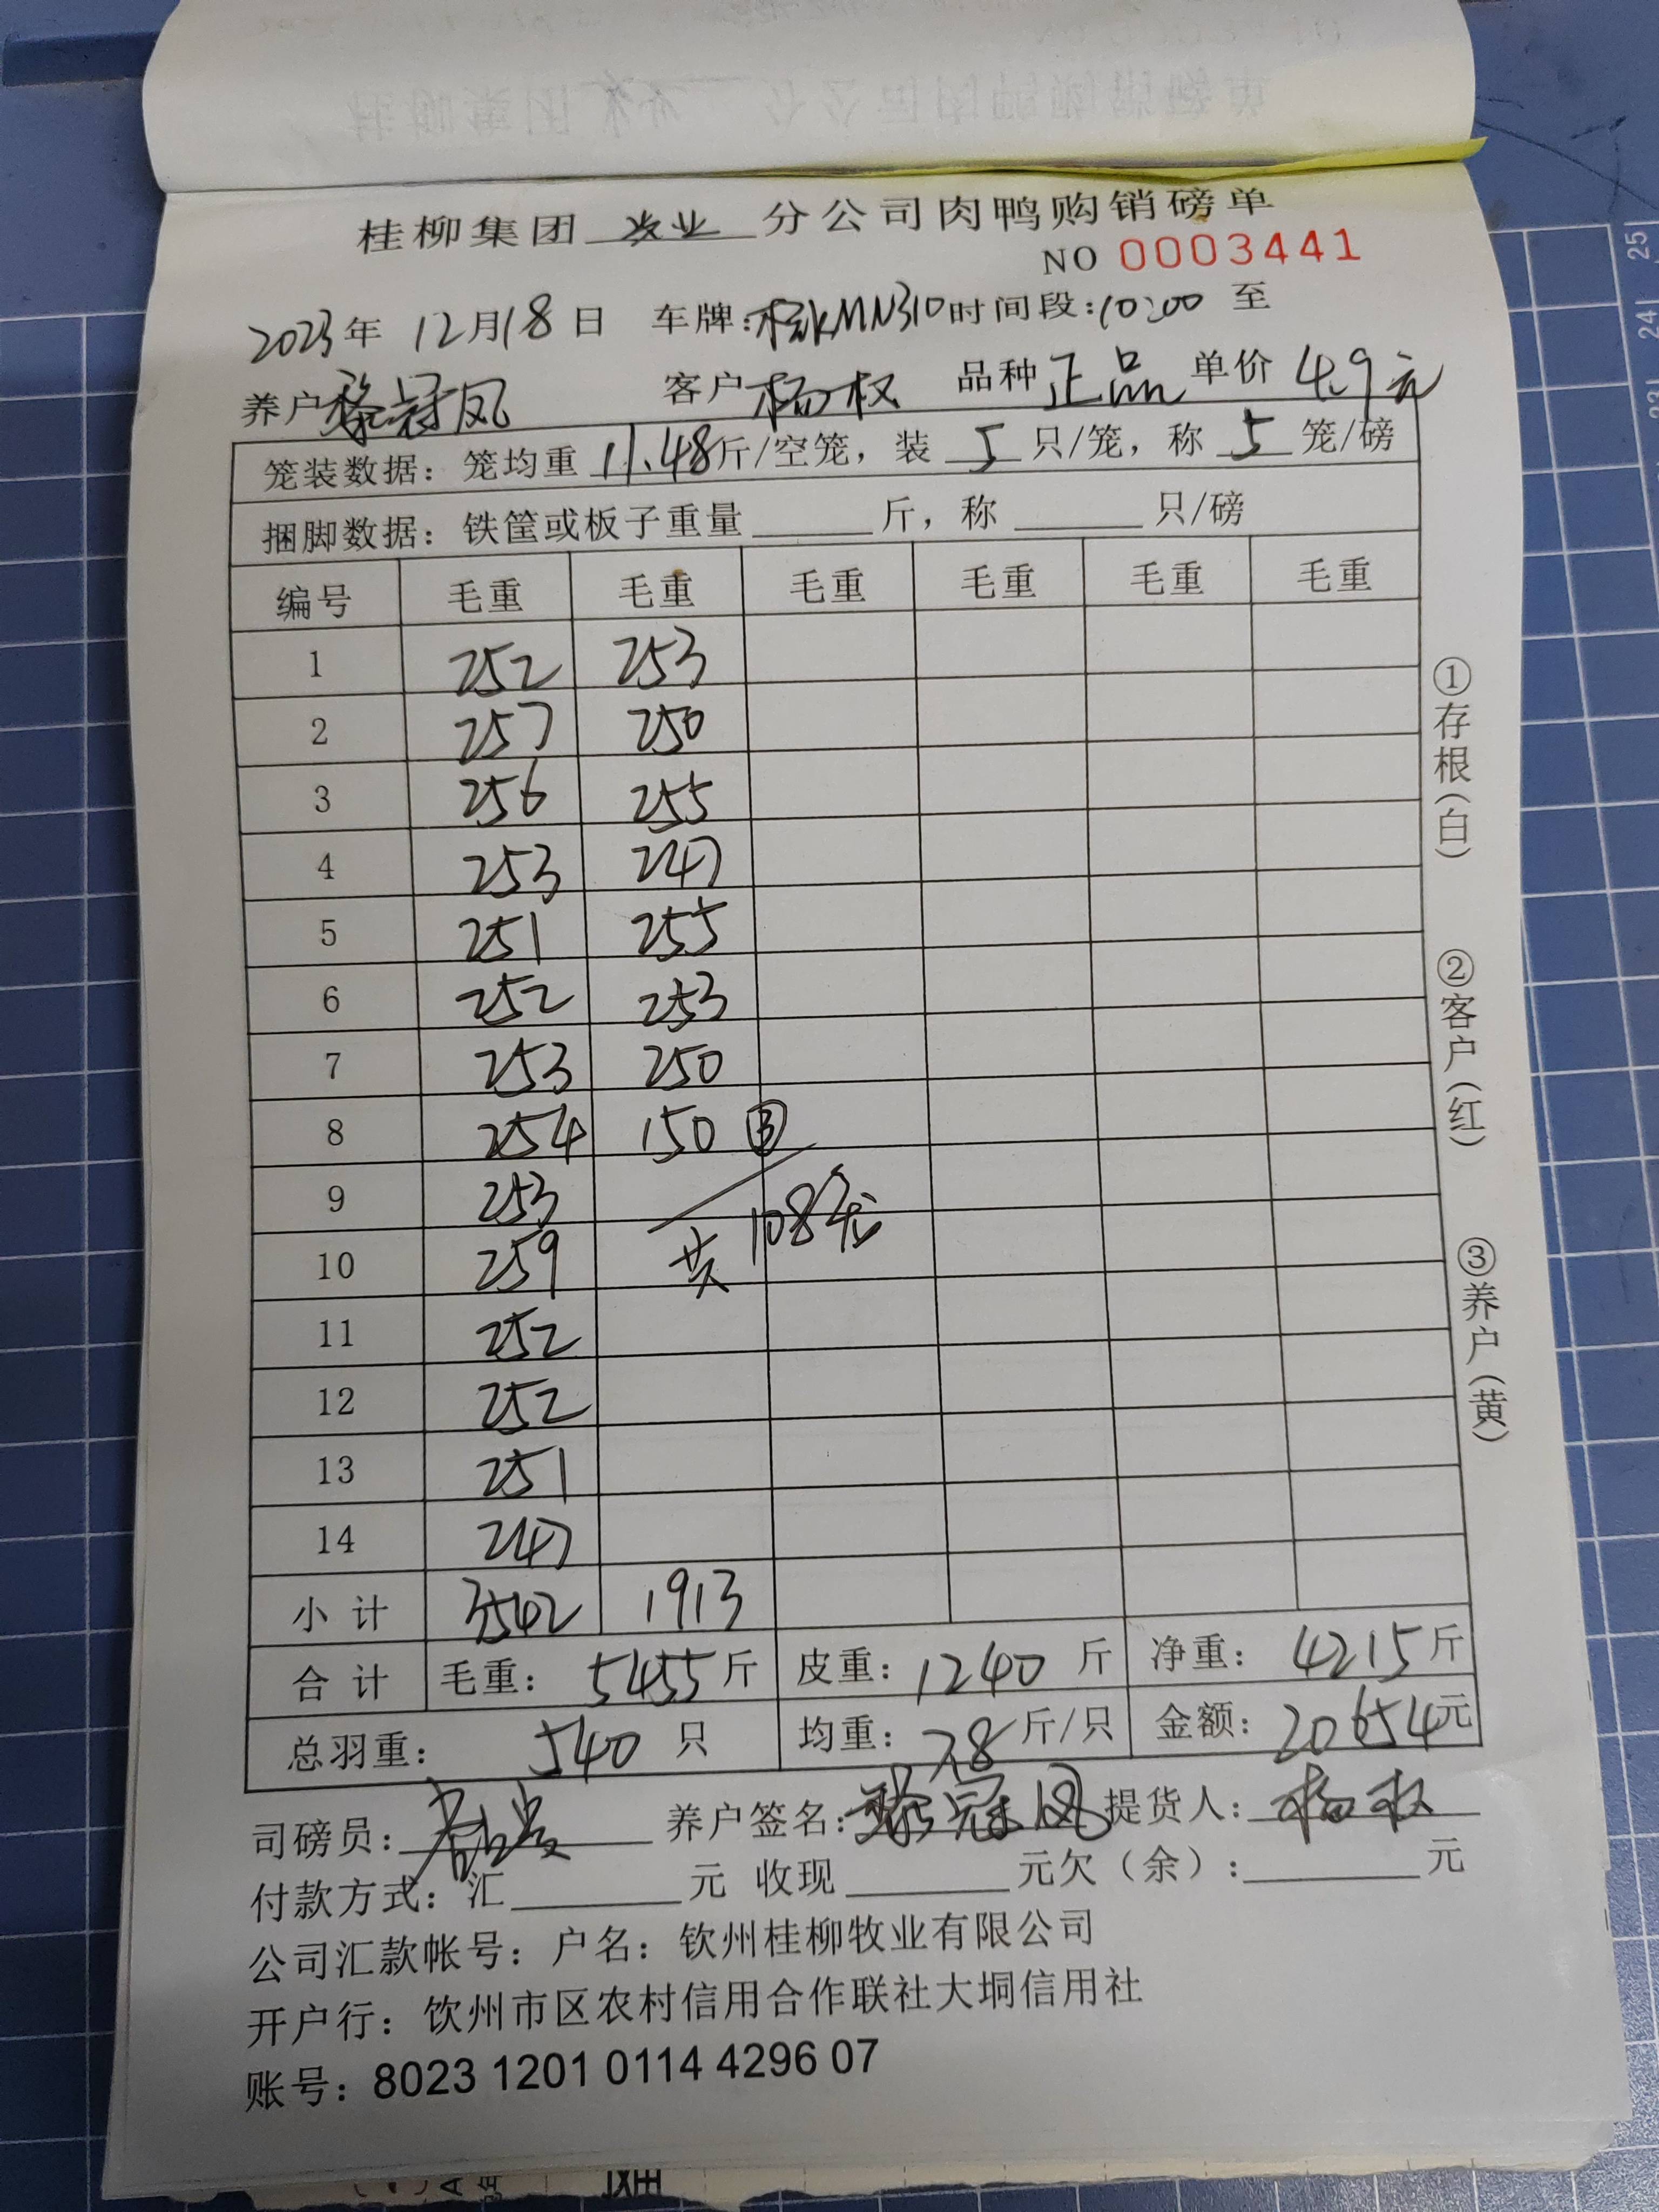 桂柳集团 农业 分公司肉鸭购销磅单
NO 0003441
2023年 12月18日 车牌:桂KMN310 时间段:10:00 至
养户 黎冠凤 客户 杨权 品种 正品 单价 4.9元
笼装数据：笼均重 11.48 斤/空笼，装 5 只/笼，称 5 笼/磅
捆脚数据：铁筐或板子重量 斤，称 只/磅
编号 毛重 毛重 毛重 毛重 毛重 毛重
1 252 253
2 257 250
3 256 255
4 253 247
5 251 255
6 252 253
7 253 250
8 254 150 ③
9 253
共 108笼
10 259
11 252
12 252
13 251
14 247
小 计 3542 1913
合 计 毛重：5455斤 皮重：1240 斤 净重：4215斤
总羽重：540 只 均重：7.8斤/只 金额：20654元
司磅员： 养户签名：黎冠凤 提货人：杨权
付款方式：汇 元 收现 元欠（余）： 元
公司汇款帐号：户名：钦州桂柳牧业有限公司
开户行：饮州市区农村信用合作联社大垌信用社
账号：8023 1201 0114 4296 07
①存根（白）
②客户（红）
③养户（黄）